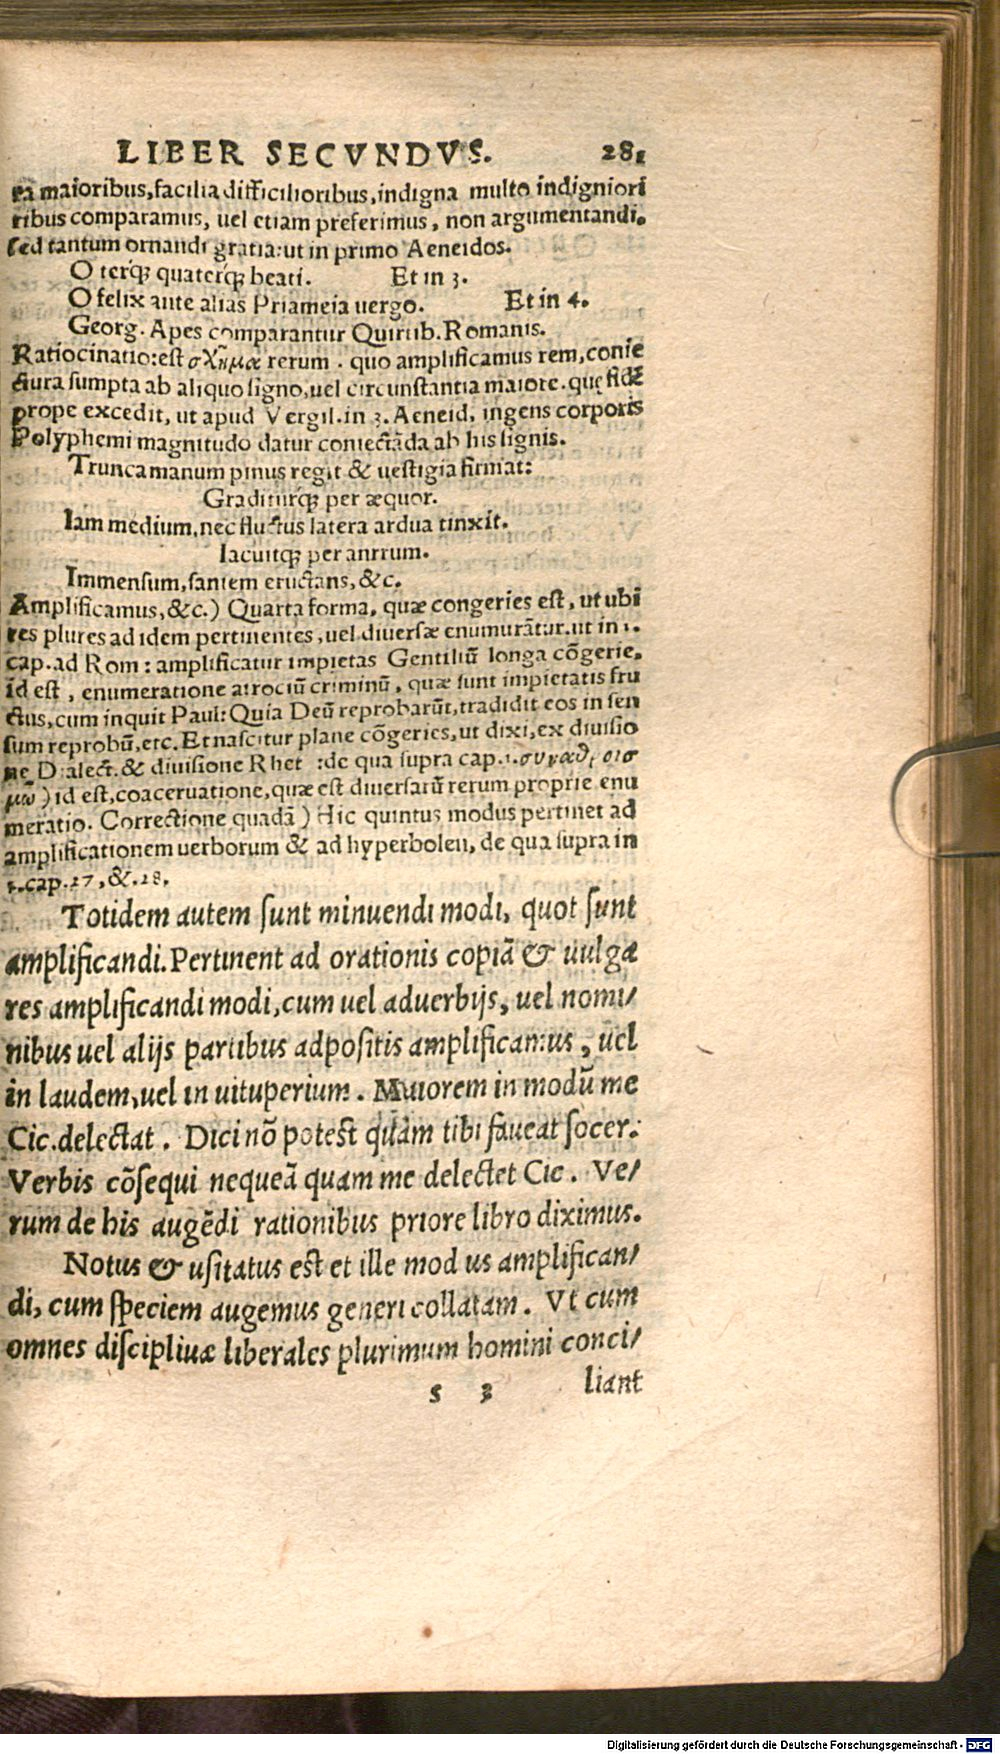 LIBER SECVNDVS. 281
ra maioribus, facilia difficilioribus, indigna multo indigniori
ribus comparamus, uel etiam preferimus, non argumentandi.
sed tantum ornandi gratia: ut in primo Aeneidos.
O terq́; quaterq́; beati. Et in 3.
O felix ante alias Priameia uergo. Et in 4.
Georg. Apes comparantur Quiritib. Romanis.
Ratiocinatio: est σχῆμα rerum . quo amplificamus rem, conie
ctura sumpta ab aliquo signo, uel circunstantia maiore. quę fidẽ
prope excedit, ut apud Vergil. in 3. Aeneid. ingens corporis
Polyphemi magnitudo datur coniectãda ab his signis.
Trunca manum pinus regit & uestigia firmat:
Graditurq́; per æquor.
Iam medium, nec fluctus latera ardua tinxit.
Iacuitq; per antrum.
Immensum, saniem eructans, &c.
Amplificamus, &c.) Quarta forma, quæ congeries est, ut ubi
res plures ad idem pertinentes, uel diuersæ enumurãtur. ut in 1.
cap. ad Rom: amplificatur impietas Gentiliũ longa cõgerie.
id est, enumeratione atrociũ criminũ, quæ sunt impietatis fru
ctus, cum inquit Paul: Quia Deũ reprobarũt, tradidit eos in sen
sum reprobũ, etc. Et nascitur plane cõgeries, ut dixi, ex diuisio
ne Dialect. & diuisione Rhet :de qua supra cap. 1. συναθροισ
μῶ) id est, coaceruatione, quæ est diuersarũ rerum proprie enu
meratio. Correctione quadã) Hic quintus modus pertinet ad
amplificationem uerborum & ad hyperbolen, de qua supra in
1. cap. 27, &. 28.
Totidem autem sunt minuendi modi, quot sunt
amplificandi. Pertinent ad orationis copiã & uulga
res amplificandi modi, cum uel aduerbijs, uel nomi/
nibus uel alijs partibus adpositis amplificamus, uel
in laudem, uel in uituperium. Maiorem in modũ me
Cic. delectat. Dici nõ potest quàm tibi faueat socer.
Verbis cõsequi nequeã quam me delectet Cic. Ve/
rum de his augẽdi rationibus priore libro diximus.
Notus & usitatus est et ille mod us amplifican/
di, cum speciem augemus generi collatam. Vt cum
omnes discipliuæ liberales plurimum homini conci/
s 3 liant
Digitalisierung gefördert durch die Deutsche Forschungsgemeinschaft - DFG